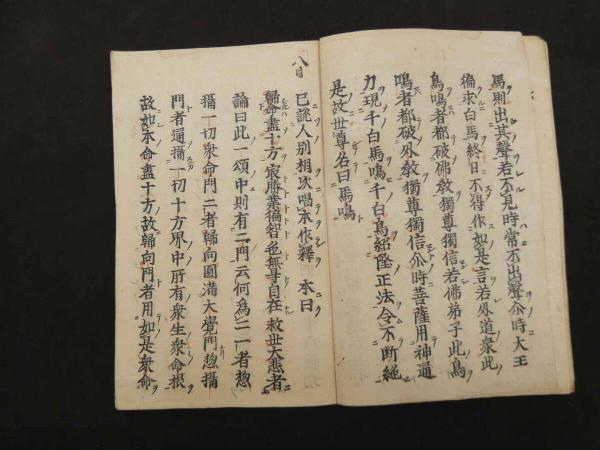 馬則出其聲若不見時常不出聲尒時大王
徧求白馬終日不得作如是言若外道衆此
鳥鳴者都破佛敎獨尊獨信若佛弟子此鳥
鳴者都破外敎獨尊獨信尒時菩薩用神通
力現千白馬鳴千白鳥紹隆正法令不斷絕
是故世尊名曰馬鳴
八日
已說人別相次唱本作釋 本曰
歸命盡十方 最勝業徧智 色無㝵自在 救世大悲者
論曰此一頌中則有二門云何爲二一者惣
攝一切衆命門二者歸向圓滿大覺門惣攝
門者通攝一切十方界中所有衆生衆命根
故如本命盡十方故歸向門者用如是衆命